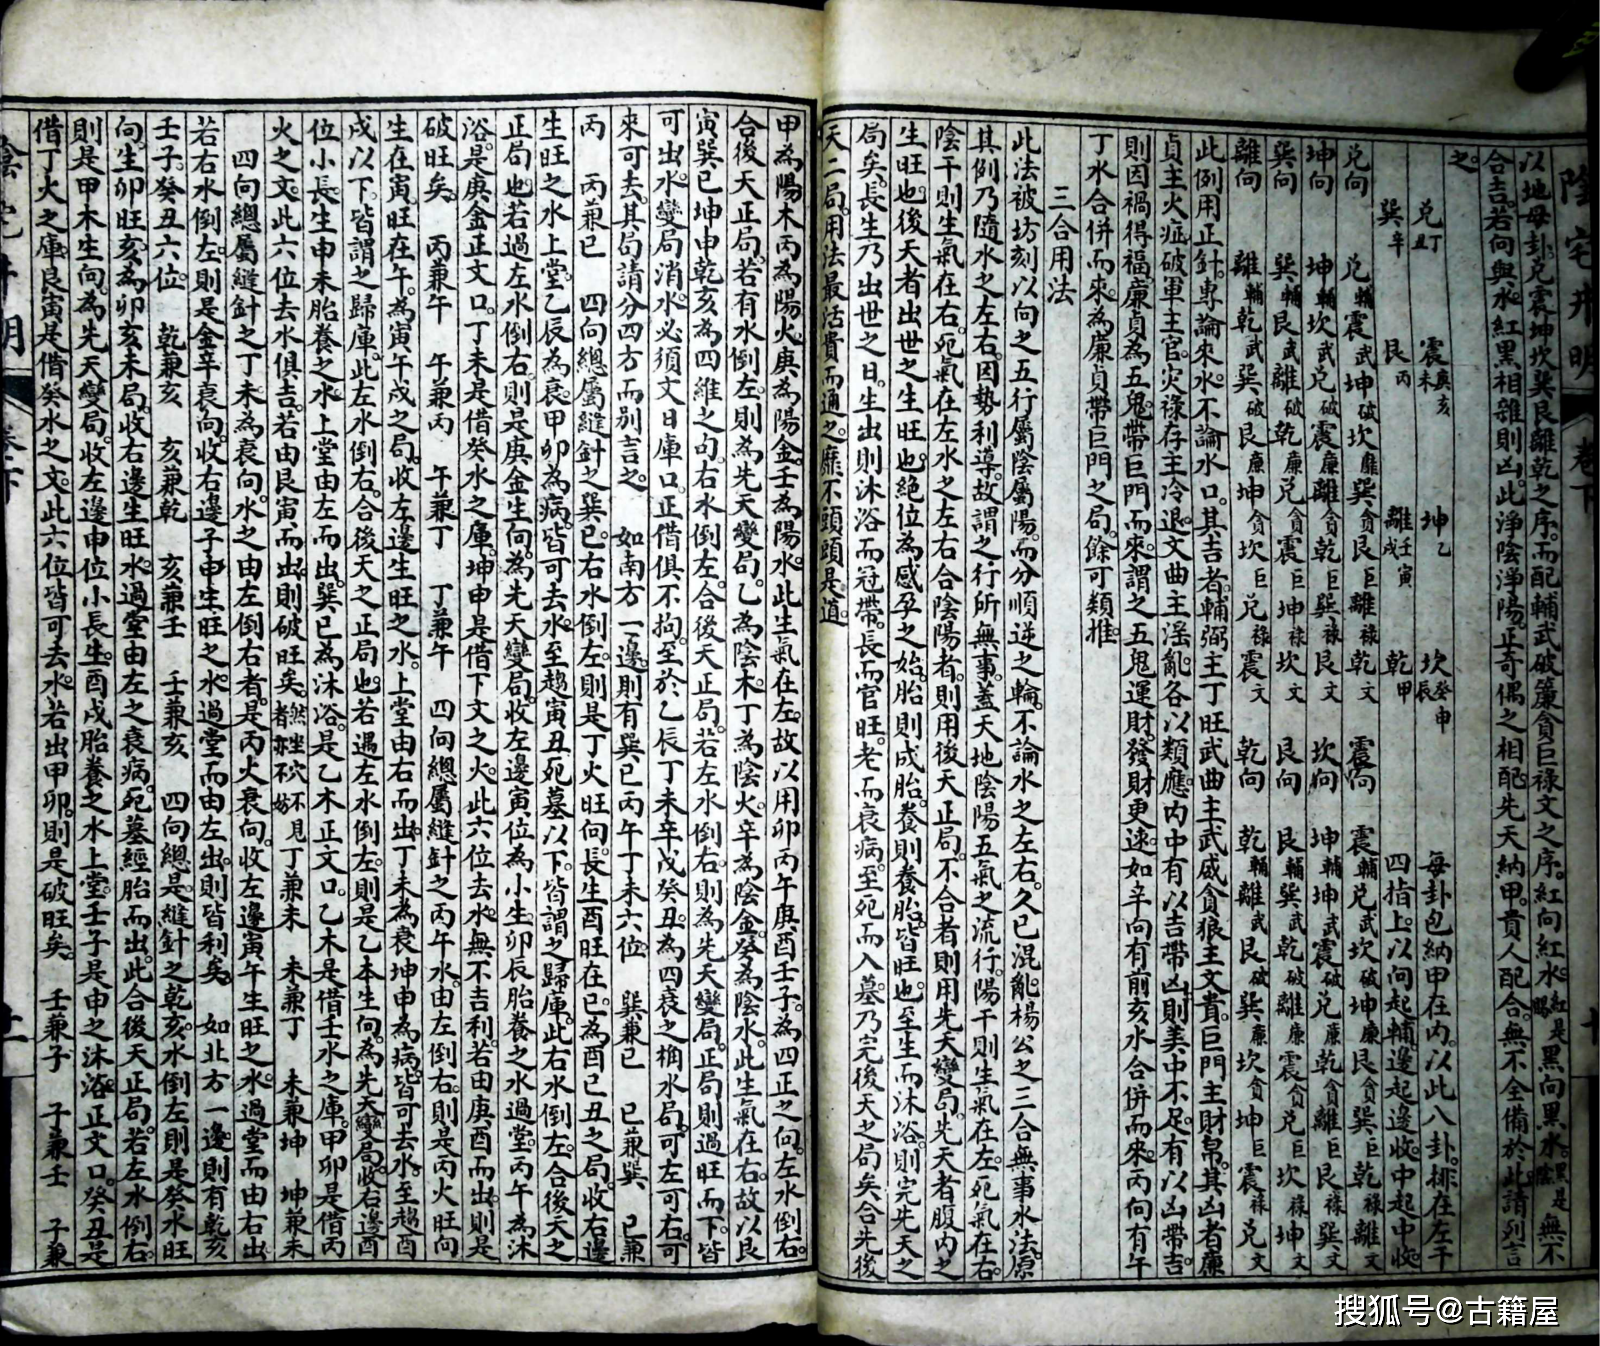 以地母卦兌震坤坎巽艮離乾之序而配輔武破簾貪巨祿文之序紅向紅水紅是陽黑向黑水黑是陰無不
合吉若向與水紅黑相雜則凶此淨陰淨陽正奇偶之相配先天納甲貴人配合無不全備於此請列言
之
兌丁丑 震庚亥未 坤乙 坎癸申辰 每卦包納甲在內以此八卦排在左干
巽辛 艮丙 離壬寅戌 乾甲 四指上以向起輔邊起邊收中起中收
兌向 兌輔震武坤破坎廉巽貪艮巨離祿乾文 震向 震輔兌武坎破坤廉艮貪巽巨乾祿離文
坤向 坤輔坎武兌破震廉離貪乾巨巽祿艮文 坎向 坤輔坤武震破兌廉乾貪離巨艮祿巽文
巽向 巽輔艮武離破乾廉兌貪震巨坤祿坎文 艮向 艮輔巽武乾破離廉震貪兌巨坎祿坤文
離向 離輔乾武巽破艮廉坤貪坎巨兌祿震文 乾向 乾輔離武艮破巽廉坎貪坤巨震祿兌文
此例用正針專論來水不論水口其吉者輔弼主丁旺武曲主武威貪狼主文貴巨門主財帛其凶者廉
貞主火症破軍主官灾祿存主冷退文曲主滛亂各以類應內中有以吉帶凶則美中不足有以凶帶吉
則因禍得福廉貞為五鬼帶巨門而來謂之五鬼運財發財更速如辛向有前亥水合併而來丙向有午
丁水合併而來為廉貞帶巨門之局餘可類推
三合用法
此法被坊刻以向之五行屬陰屬陽而分順逆之輪不論水之左右久已混亂楊公之三合無事水法原
其例乃隨水之左右因勢利導故謂之行所無事蓋天地陰陽五氣之流行陽干則生氣在左死氣在右
陰干則生氣在右死氣在左水之左右合陰陽者則用後天正局不合者則用先天變局先天者腹內之
生旺也後天者出世之生旺也絕位為感孕之始胎則成胎養則養胎皆旺也至生而沐浴則完先天之
局矣長生乃出世之日生出則沐浴而冠帶長而官旺老而衰病至死而入墓乃完後天之局矣合先後
天二局用法最活貫而通之靡不頭頭是道
甲為陽木丙為陽火庚為陽金壬為陽水此生氣在左故以用卯丙午庚酉壬子為四正之向左水倒右
合後天正局若有水倒左則為先天變局乙為陰木丁為陰火辛為陰金癸為陰水此生氣在右故以艮
寅巽巳坤申乾亥為四維之句右水倒左合後天正局若左水倒右則為先天變局正局則過旺而下皆
可出水變局消水必須文日庫口正借俱不拘至於乙辰丁未辛戌癸丑為四衰之向水局可左可右可
來可去其局請分四方而別言之 如南方一邊則有巽巳丙午丁未六位 巽兼巳 巳兼巽 巳兼
丙 丙兼巳 四向總屬縫針之巽巳右水倒左則是丁火旺向長生酉旺在巳為酉巳丑之局收右邊
生旺之水上堂乙辰為衰甲卯為病皆可去水至趨寅丑死墓以下皆謂之歸庫此右水倒左合後天之
正局也若過左水倒右則是庚金生向為先天變局收左邊寅位為小生卯辰胎養之水過堂丙午為沐
浴是庚金正文口丁未是借癸水之庫坤申是借下文之火此六位去水無不吉利若由庚酉而出則是
破旺矣 丙兼午 午兼丙 午兼丁 丁兼午 四向總屬縫針之丙午水由左倒右則是丙火旺向
生在寅旺在午為寅午戌之局收左邊生旺之水上堂由右而出丁未為衰坤申為病皆可去水至趨酉
戌以下皆謂之歸庫此左水倒右合後天之正局也若遇左水倒左則是乙本生向為先天變局收右邊酉
位小長生申未胎養之水上堂由左而出巽巳為沐浴是乙木正文口乙木是借壬水之庫甲卯是借丙
火之文此六位去水俱吉若由艮寅而出則破旺矣然坐穴不見者亦不妨丁兼未 未兼丁 未兼坤 坤兼未
四向總屬縫針之丁未為衰向水之由左倒右者是丙火衰向收左邊寅午生旺之水過堂而由右出
若右水倒左則是金辛衰向收右邊子申生旺之水過堂而由左出則皆利矣 如北方一邊則有乾亥
壬子癸丑六位 乾兼亥 亥兼乾 亥兼壬 壬兼亥 四向總是縫針之乾亥水倒左則是癸水旺
向生卯旺亥為卯亥未局收右邊生旺水過堂由左之衰病死墓經胎而出此合後天正局若左水倒右
則是甲木生向為先天變局收左邊申位小長生酉戌胎養之水上堂壬子是申之沐浴正文口癸丑是
借丁火之庫艮寅是借癸水之文此六位皆可去水若出甲卯則是破旺矣 壬兼子 子兼壬 子兼
搜狐号@古籍屋